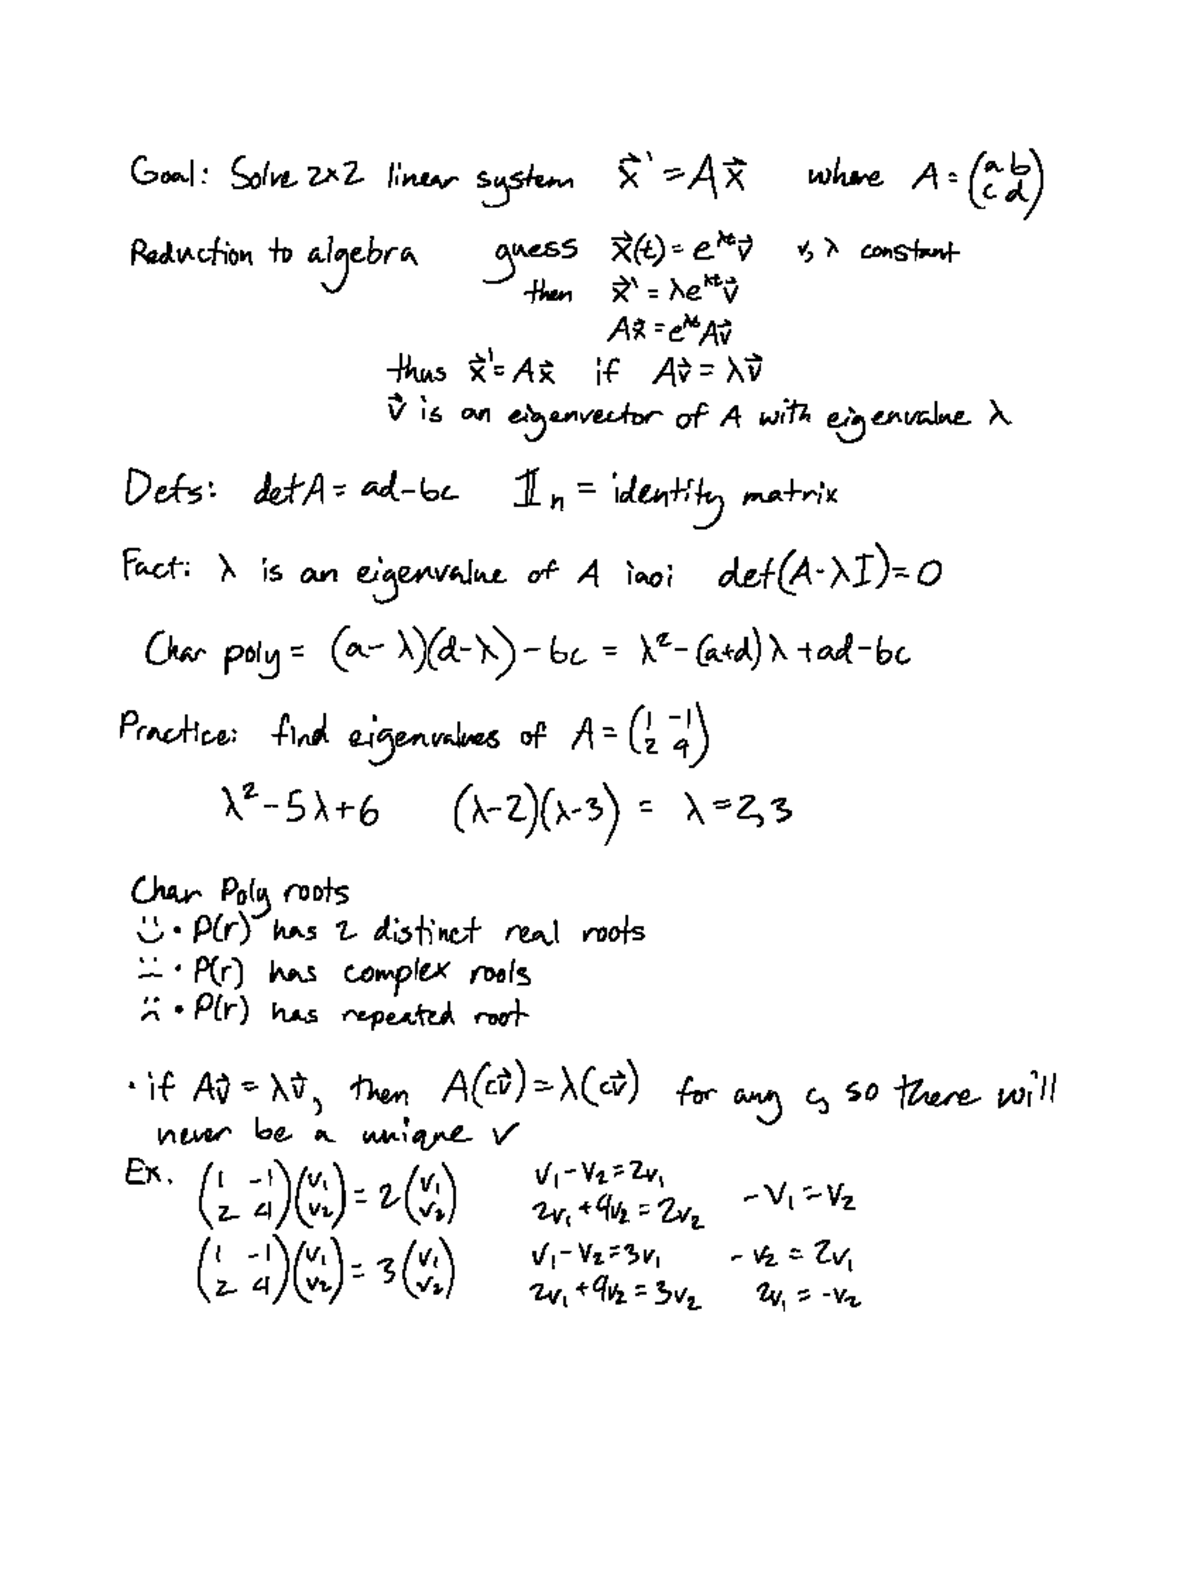 Goal: Solve 2×2 linear system x⃗' = Ax⃗ where A = (a b c d)
Reduction to algebra guess x⃗(t) = e^λt v⃗ v, λ constant
then x⃗' = λe^λt v⃗
Ax⃗ = e^λt Av⃗
thus x⃗' = Ax⃗ if Av⃗ = λv⃗
v⃗ is an eigenvector of A with eigenvalue λ
Defs: det A = ad-bc 𝕀n = identity matrix
Fact: λ is an eigenvalue of A iaoi det(A-λI)=0
Char poly = (a-λ)(d-λ)-bc = λ²-(a+d)λ+ad-bc
Practice: find eigenvalues of A = (1 -1 2 4)
λ²-5λ+6 (λ-2)(λ-3) = λ=2,3
Char Poly roots
• P(r) has 2 distinct real roots
• P(r) has complex roots
• P(r) has repeated root
• if Av⃗ = λv⃗, then A(cv⃗)=λ(cv⃗) for any c, so there will
never be a unique v
Ex. (1 -1 2 4)(v₁ v₂) = 2(v₁ v₂) v₁-v₂=2v₁ -v₁=v₂
2v₁+4v₂=2v₂
(1 -1 2 4)(v₁ v₂) = 3(v₁ v₂) v₁-v₂=3v₁ -v₂=2v₁
2v₁+4v₂=3v₂ 2v₁=-v₂